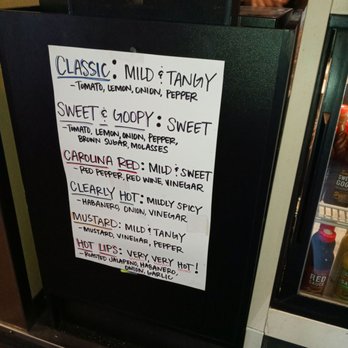 CLASSIC: MILD & TANGY
- TOMATO, LEMON, ONION, PEPPER
SWEET & GOOPY: SWEET
- TOMATO, LEMON, ONION, PEPPER,
BROWN SUGAR, MOLASSES
CAROLINA RED: MILD & SWEET
- RED PEPPER, RED WINE, VINEGAR
CLEARLY HOT: MILDLY SPICY
- HABANERO, ONION, VINEGAR
MUSTARD: MILD & TANGY
- MUSTARD, VINEGAR, PEPPER
HOT LIPS: VERY, VERY HOT!
- ROASTED JALAPENO, HABANERO,
ONION, GARLIC
RED